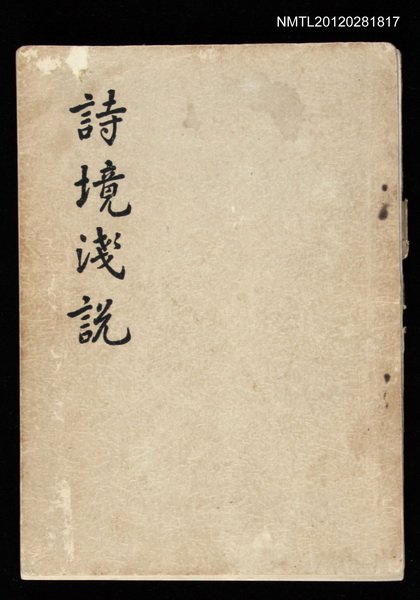 NMTL20120281817
詩境淺說